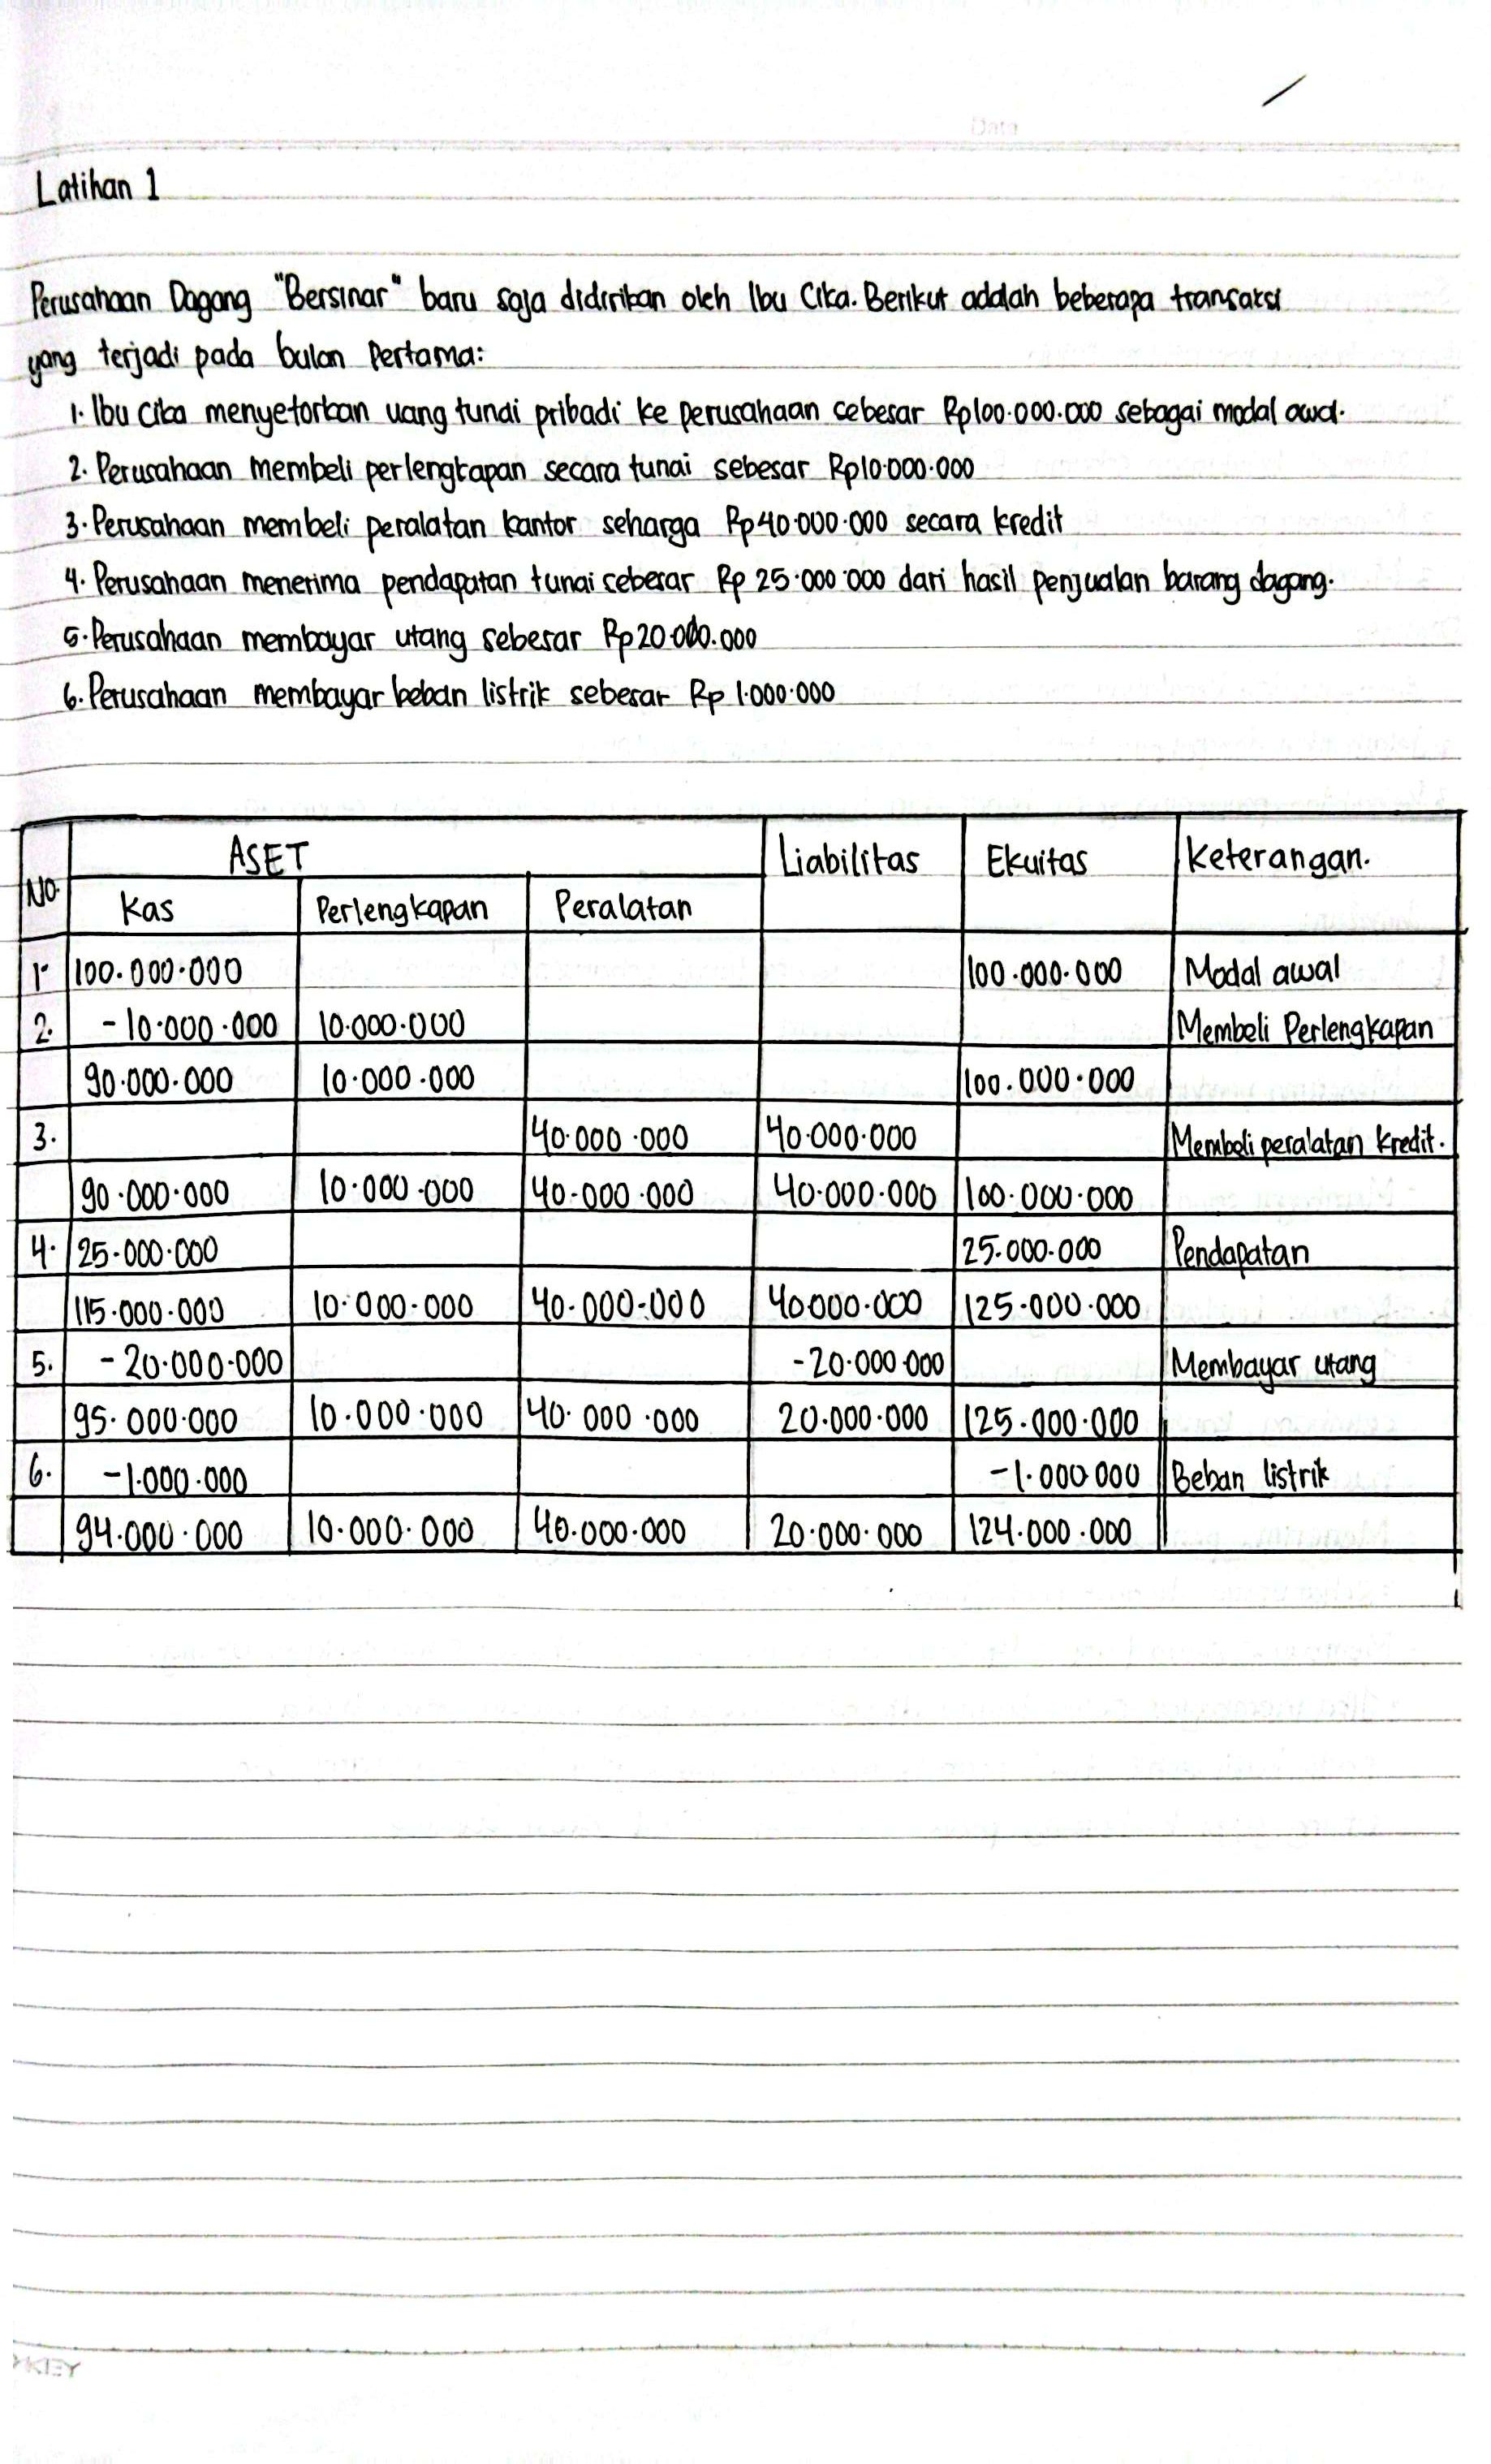 Date
Latihan 1
Perusahaan Dagang "Bersinar" baru saja didirikan oleh Ibu Cika. Berikut adalah beberapa transaksi
yang terjadi pada bulan Pertama:
1. Ibu Cika menyetorkan uang tundi pribadi ke perusahaan cebesar Rp100.000.000 sebagai modal awal.
2. Perusahaan membeli perlengkapan secara tunai sebesar Rp10.000.000
3. Perusahaan membeli peralatan kantor seharga Rp40.000.000 secara kredit
4. Perusahaan menerima pendapatan tunai cebesar Rp 25.000.000 dari hasil penjualan barang dagang.
5. Perusahaan membayar utang sebesar Rp20.000.000
6. Perusahaan membayar beban listrik sebesar Rp 1.000.000
No. ASET Liabilitas Ekuitas Keterangan.
Kas Perlengkapan Peralatan
1. 100.000.000 100.000.000 Modal awal
2. -10.000.000 10.000.000 Membeli Perlengkapan
90.000.000 10.000.000 100.000.000
3. 40.000.000 40.000.000 Membeli peralatan kredit.
90.000.000 10.000.000 40.000.000 40.000.000 100.000.000
4. 25.000.000 25.000.000 Pendapatan
115.000.000 10.000.000 40.000.000 40000.000 125.000.000
5. -20.000.000 -20.000.000 Membayar utang
95.000.000 10.000.000 40.000.000 20.000.000 125.000.000
6. -1.000.000 -1.000.000 Beban listrik
94.000.000 10.000.000 40.000.000 20.000.000 124.000.000